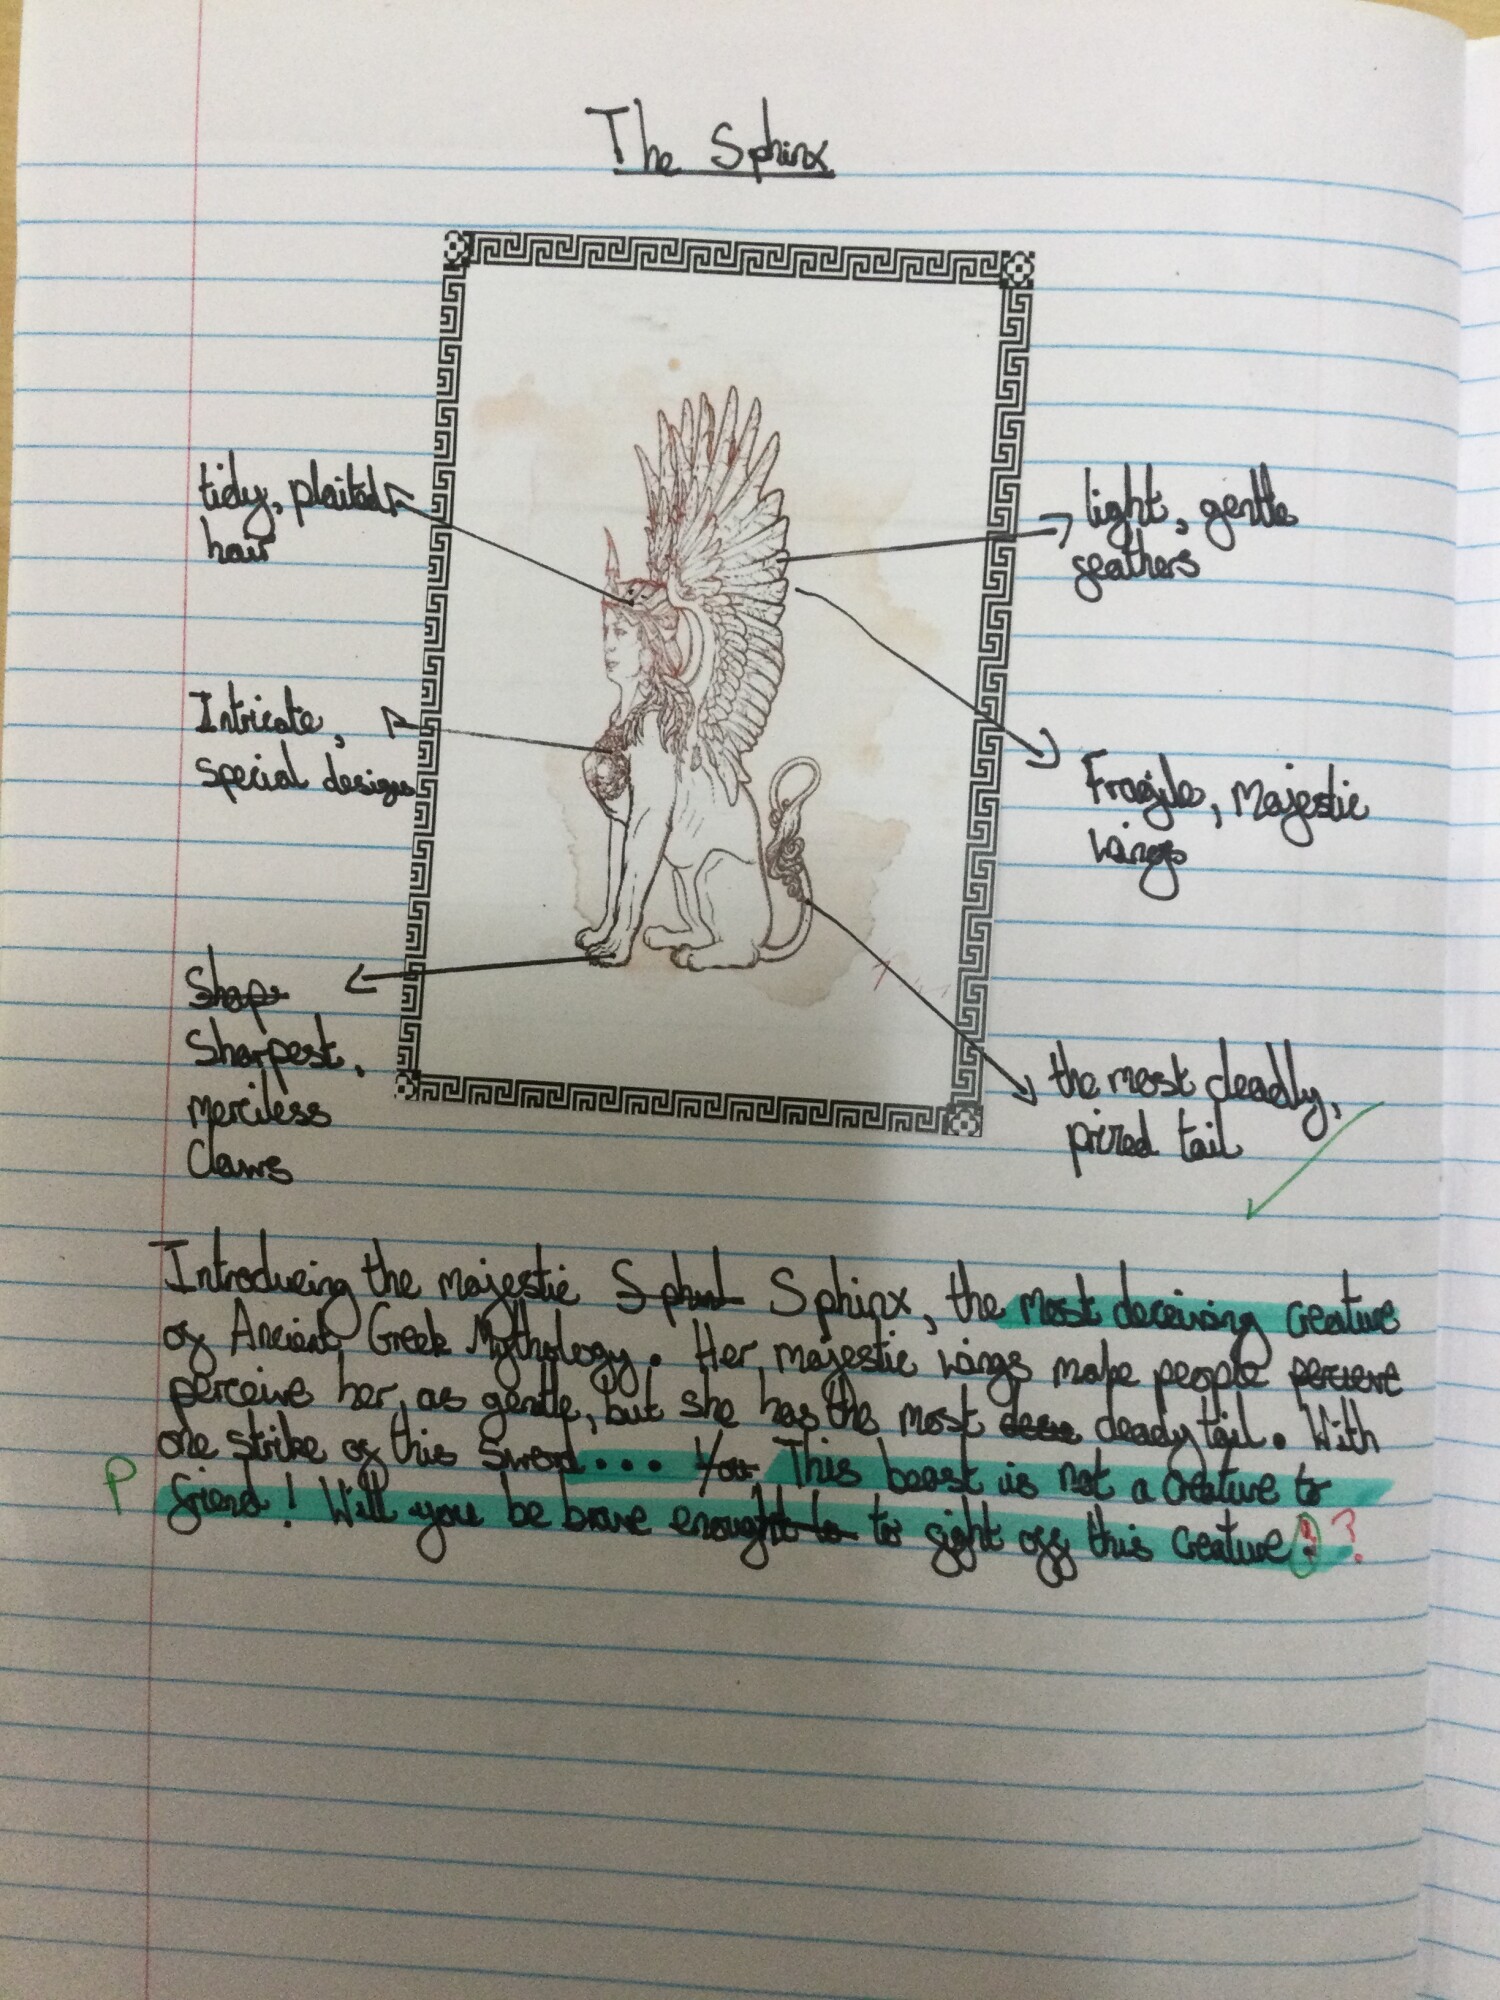 The Sphinx
tidy, plaited
hair
light, gentle
feathers
Intricate,
special designs
Fragile, Majestic
wings
Shap
Sharpest,
merciless
claws
the most deadly,
prized tail
Introducing the majestic Sphinx, the most deceiving creature
of Ancient Greek Mythology. Her majestic wings make people
perceive her as gentle, but she has the most deady tail. With
one strike of this sword... You This beast is not a creature to
P friend! Will you be brave enought to to fight off this creature ?